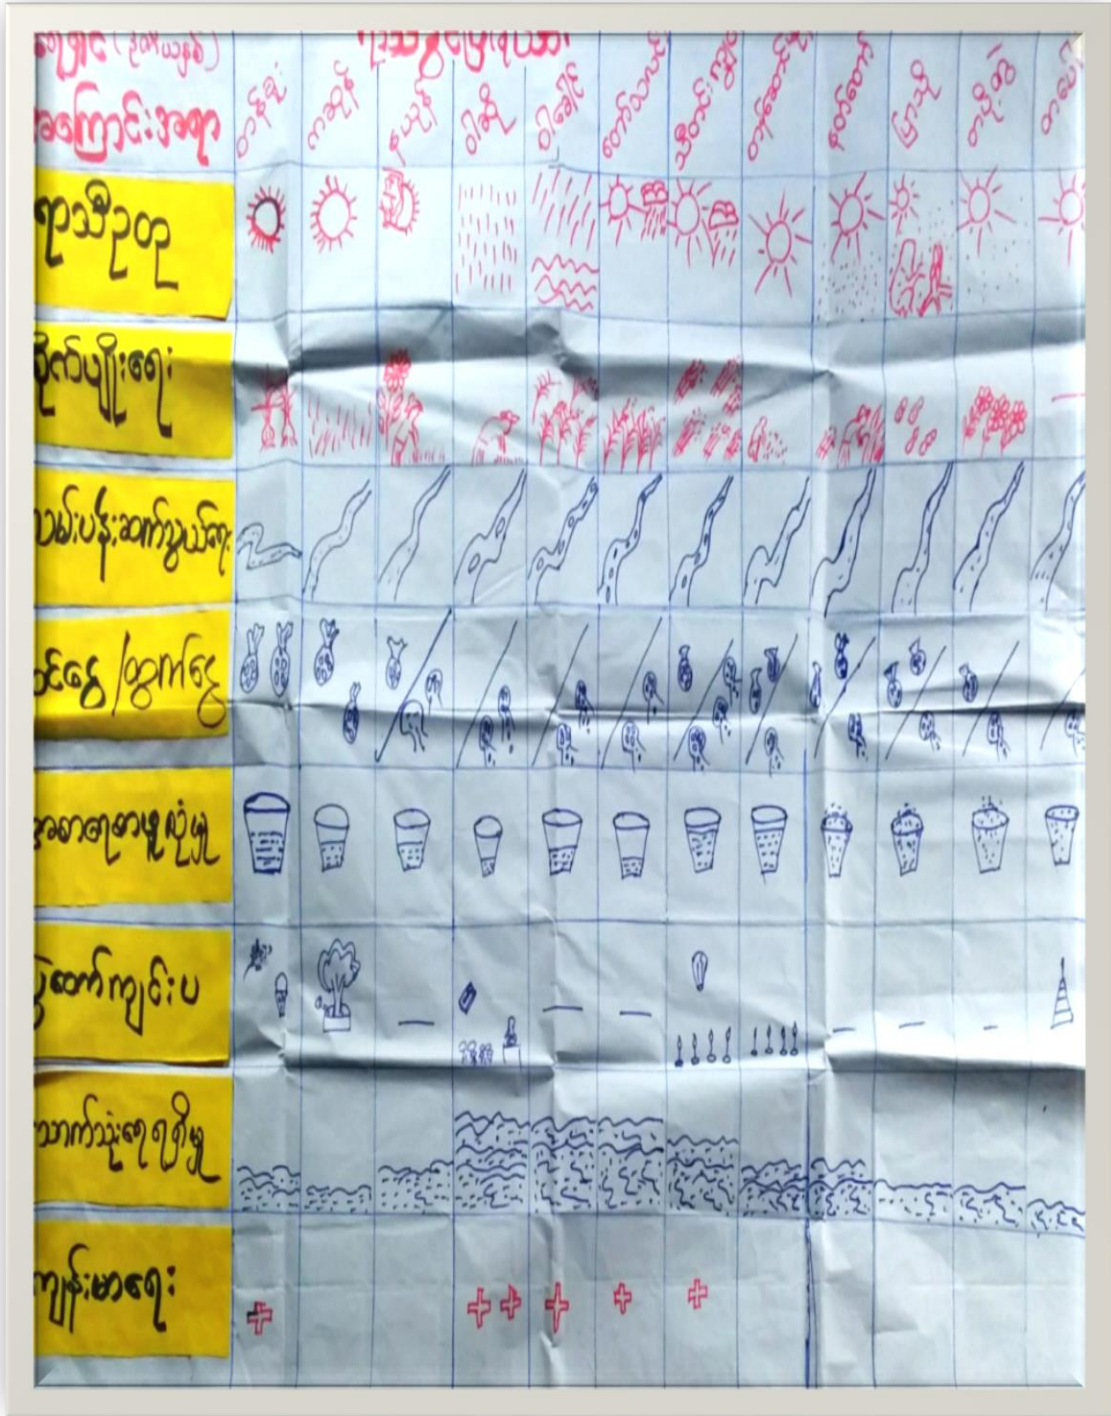 အကြောင်းအရာ
တန်ခူး
ကဆုန်
နယုန်
ဝါဆို
ဝါခေါင်
တော်သလင်း
သီတင်းကျွတ်
တန်ဆောင်မုန်း
နတ်တော်
ပြာသို
တပို့တွဲ
ရာသီဥတု
စိုက်ပျိုးရေး
လမ်းပန်းဆက်သွယ်ရေး
ဝင်ငွေ/ထွက်ငွေ
အစာရေစာဖူလုံမှု
ပွဲတော်ကျင်းပ
သောက်သုံးရေရရှိမှု
ကျန်းမာရေး